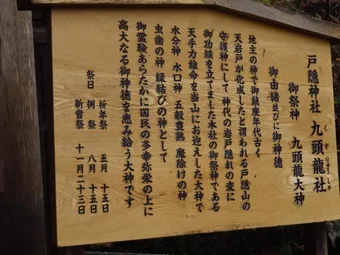 戸隠神社 九頭龍社
御祭神 九頭龍大神
御由緒並びに御神徳
地主の神で御鎮座年代古く
天岩戸が化成したと謂われる戸隠山の
守護神にして神代の岩戸隠れの変に
御功績を立てました本社の御祭神である
天手力雄命を当山にお迎えした大神で
水分神 水口神 五穀豊熟 魔除けの神
虫歯の神 縁結びの神として
御霊験あらたかに国民の多幸弥栄の上に
高大なる御神徳を恵み給う大神です
祭日 祈年祭 五月 十五日
例祭 八月 十五日
新嘗祭 十一月二十三日